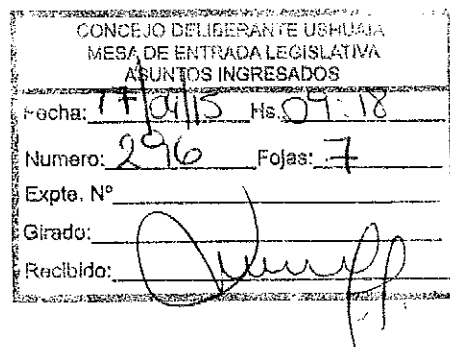 CONCEJO DELIBERANTE USHUAIA
MESA DE ENTRADA LEGISLATIVA
ASUNTOS INGRESADOS
Fecha: 17/04/15 Hs. 09:18
Numero: 296 Fojas: 7
Expte. Nº
Girado:
Recibido: